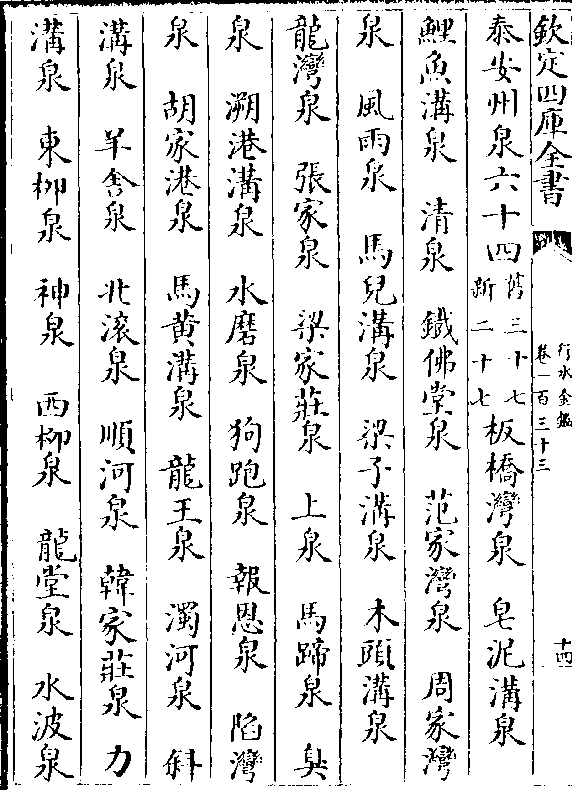 欽定四庫全書
行水金鑑
卷一百三十三
十四
泰安州泉六十四舊三十七新二十七板橋灣泉 皂泥溝泉
鯉魚溝泉 清泉 鐵佛堂泉 范家灣泉 周家灣
泉 風雨泉 馬兒溝泉 梁子溝泉 木頭溝泉
龍灣泉 張家泉 梁家莊泉 上泉 馬蹄泉 臭
泉 溯港溝泉 水磨泉 狗跑泉 報恩泉 陷灣
泉 胡家港泉 馬黄溝泉 龍王泉 濁河泉 斜
溝泉 羊舍泉 北滚泉 順河泉 韓家莊泉 力
溝泉 東柳泉 神泉 西柳泉 龍堂泉 水波泉